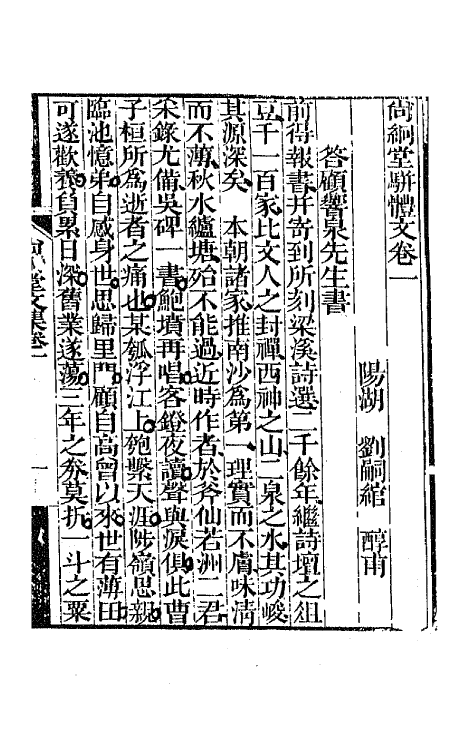 尙絅堂駢體文卷一
陽湖　劉嗣綰　醇甫
答顧響泉先生書
前得報書幷寄到所刻梁溪詩選二千餘年繼詩壇之俎
豆千一百家比文人之封禪西神之山二泉之水其功峻
其源深矣　本朝諸家推南沙爲第一理實而不膚味清
而不薄秋水纑塘殆不能過近時作者於斧仙若洲二君
采錄尤備吳碑一書鮑墳再唱客鐙夜讀聲與淚俱此曹
子桓所爲逝者之痛也某瓠浮江上匏繫天涯陟嶺思親
臨池憶弟自感身世思歸里門顧自高曾以來世有薄田
可遂歡養負累日深舊業遂蕩三年之劵莫折一斗之粟
堂文集卷一
一